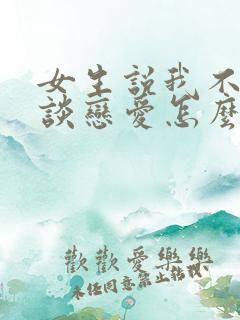 女生説我不
談戀愛怎麼
歡歡愛樂樂
未任同意禁止轉損